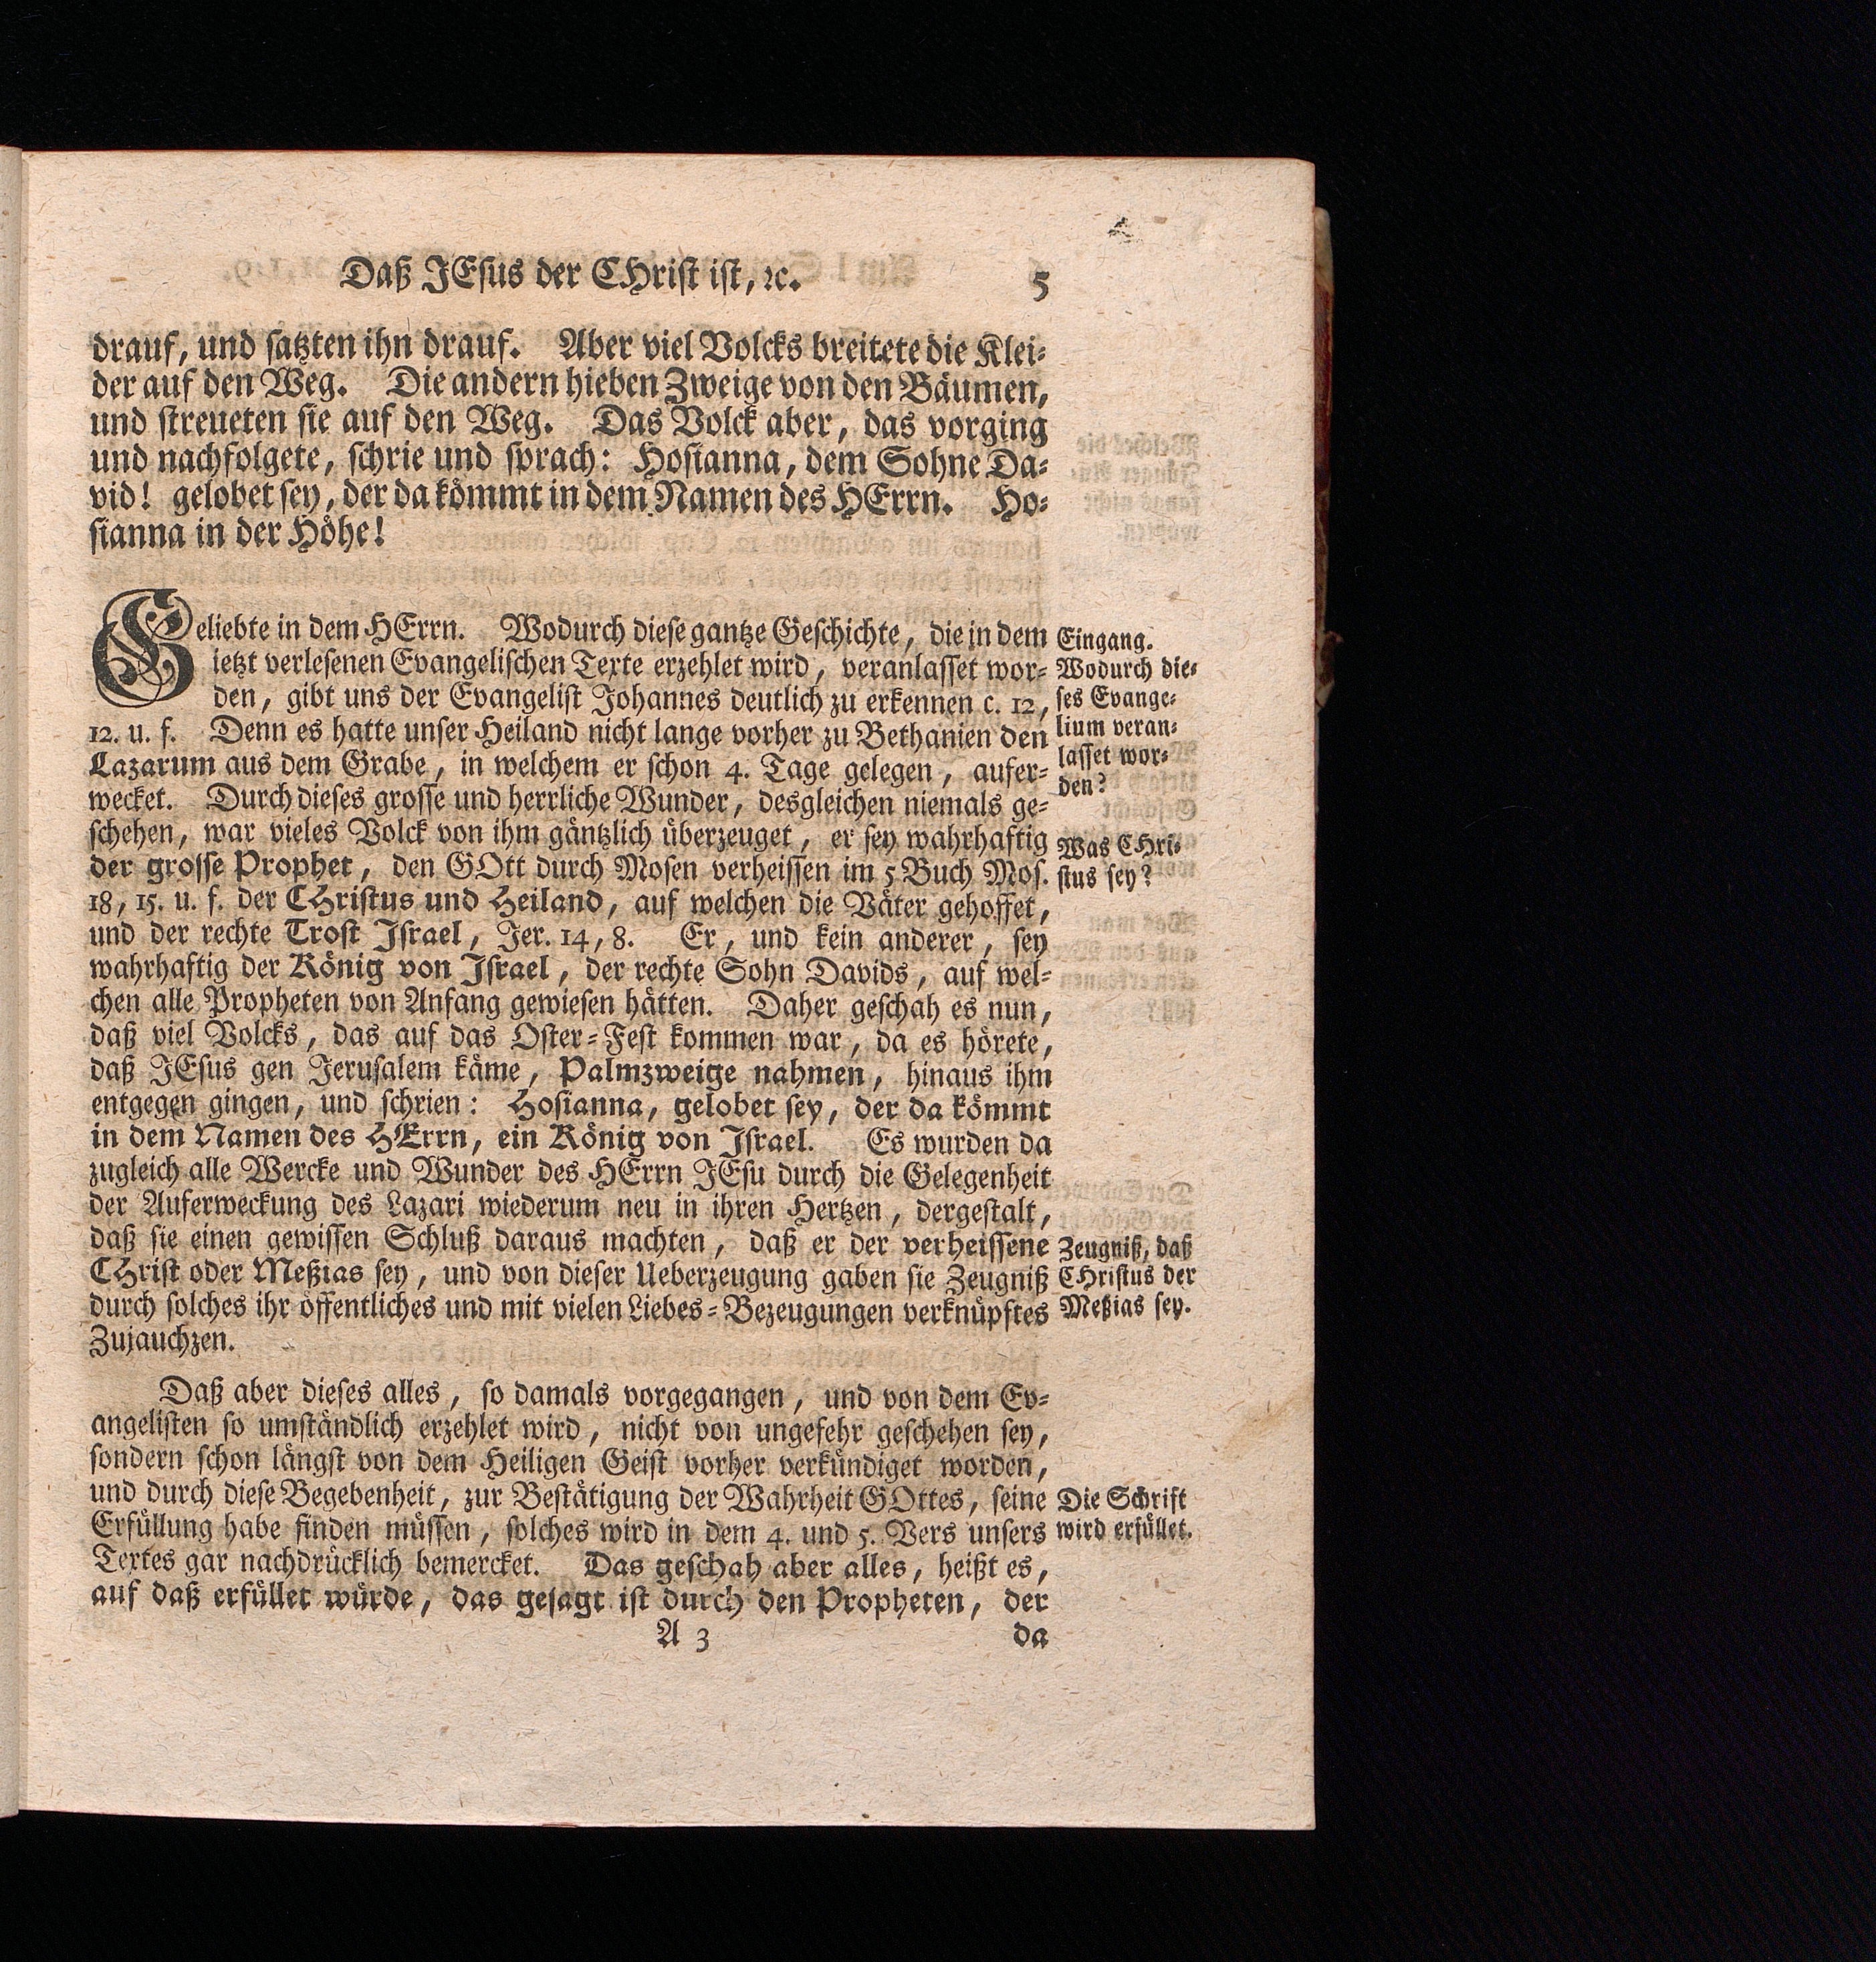 Daß JEsus der CHrist ist, ꝛc. 5
drauf, und satzten ihn drauf. Aber viel Volcks breitete die Klei-
der auf den Weg. Die andern hieben Zweige von den Bäumen,
und streueten sie auf den Weg. Das Volck aber, das vorging
und nachfolgete, schrie und sprach: Hosianna, dem Sohne Da-
vid! gelobet sey, der da kömmt in dem Namen des HErrn. Ho-
sianna in der Höhe!
Geliebte in dem HErrn. Wodurch diese gantze Geschichte, die in dem
ietzt verlesenen Evangelischen Texte erzehlet wird, veranlasset wor-
den, gibt uns der Evangelist Johannes deutlich zu erkennen c. 12,
12. u. f. Denn es hatte unser Heiland nicht lange vorher zu Bethanien den
Lazarum aus dem Grabe, in welchem er schon 4. Tage gelegen, aufer-
wecket. Durch dieses grosse und herrliche Wunder, desgleichen niemals ge-
schehen, war vieles Volck von ihm gäntzlich überzeuget, er sey wahrhaftig
der grosse Prophet, den GOtt durch Mosen verheissen im 5 Buch Mos.
18, 15. u. f. der CHristus und Heiland, auf welchen die Väter gehoffet,
und der rechte Trost Israel, Jer. 14, 8. Er, und kein anderer, sey
wahrhaftig der König von Israel, der rechte Sohn Davids, auf wel-
chen alle Propheten von Anfang gewiesen hätten. Daher geschah es nun,
daß viel Volcks, das auf das Oster-Fest kommen war, da es hörete,
daß JEsus gen Jerusalem käme, Palmzweige nahmen, hinaus ihm
entgegen gingen, und schrien: Hosianna, gelobet sey, der da kömmt
in dem Namen des HErrn, ein König von Israel. Es wurden da
zugleich alle Wercke und Wunder des HErrn JEsu durch die Gelegenheit
der Auferweckung des Lazari wiederum neu in ihren Hertzen, dergestalt,
daß sie einen gewissen Schluß daraus machten, daß er der verheissene
CHrist oder Meßias sey, und von dieser Ueberzeugung gaben sie Zeugniß
durch solches ihr öffentliches und mit vielen Liebes-Bezeugungen verknüpftes
Zujauchzen.
Daß aber dieses alles, so damals vorgegangen, und von dem Ev-
angelisten so umständlich erzehlet wird, nicht von ungefehr geschehen sey,
sondern schon längst von dem Heiligen Geist vorher verkündiget worden,
und durch diese Begebenheit, zur Bestätigung der Wahrheit GOttes, seine
Erfüllung habe finden müssen, solches wird in dem 4. und 5. Vers unsers
Textes gar nachdrücklich bemercket. Das geschah aber alles, heißt es,
auf daß erfüllet würde, das gesagt ist durch den Propheten, der
A 3 da
Eingang.
Wodurch die-
ses Evange-
lium veran-
lasset wor-
den?
Was CHri-
stus sey?
Zeugniß, daß
CHristus der
Meßias sey.
Die Schrift
wird erfüllet.